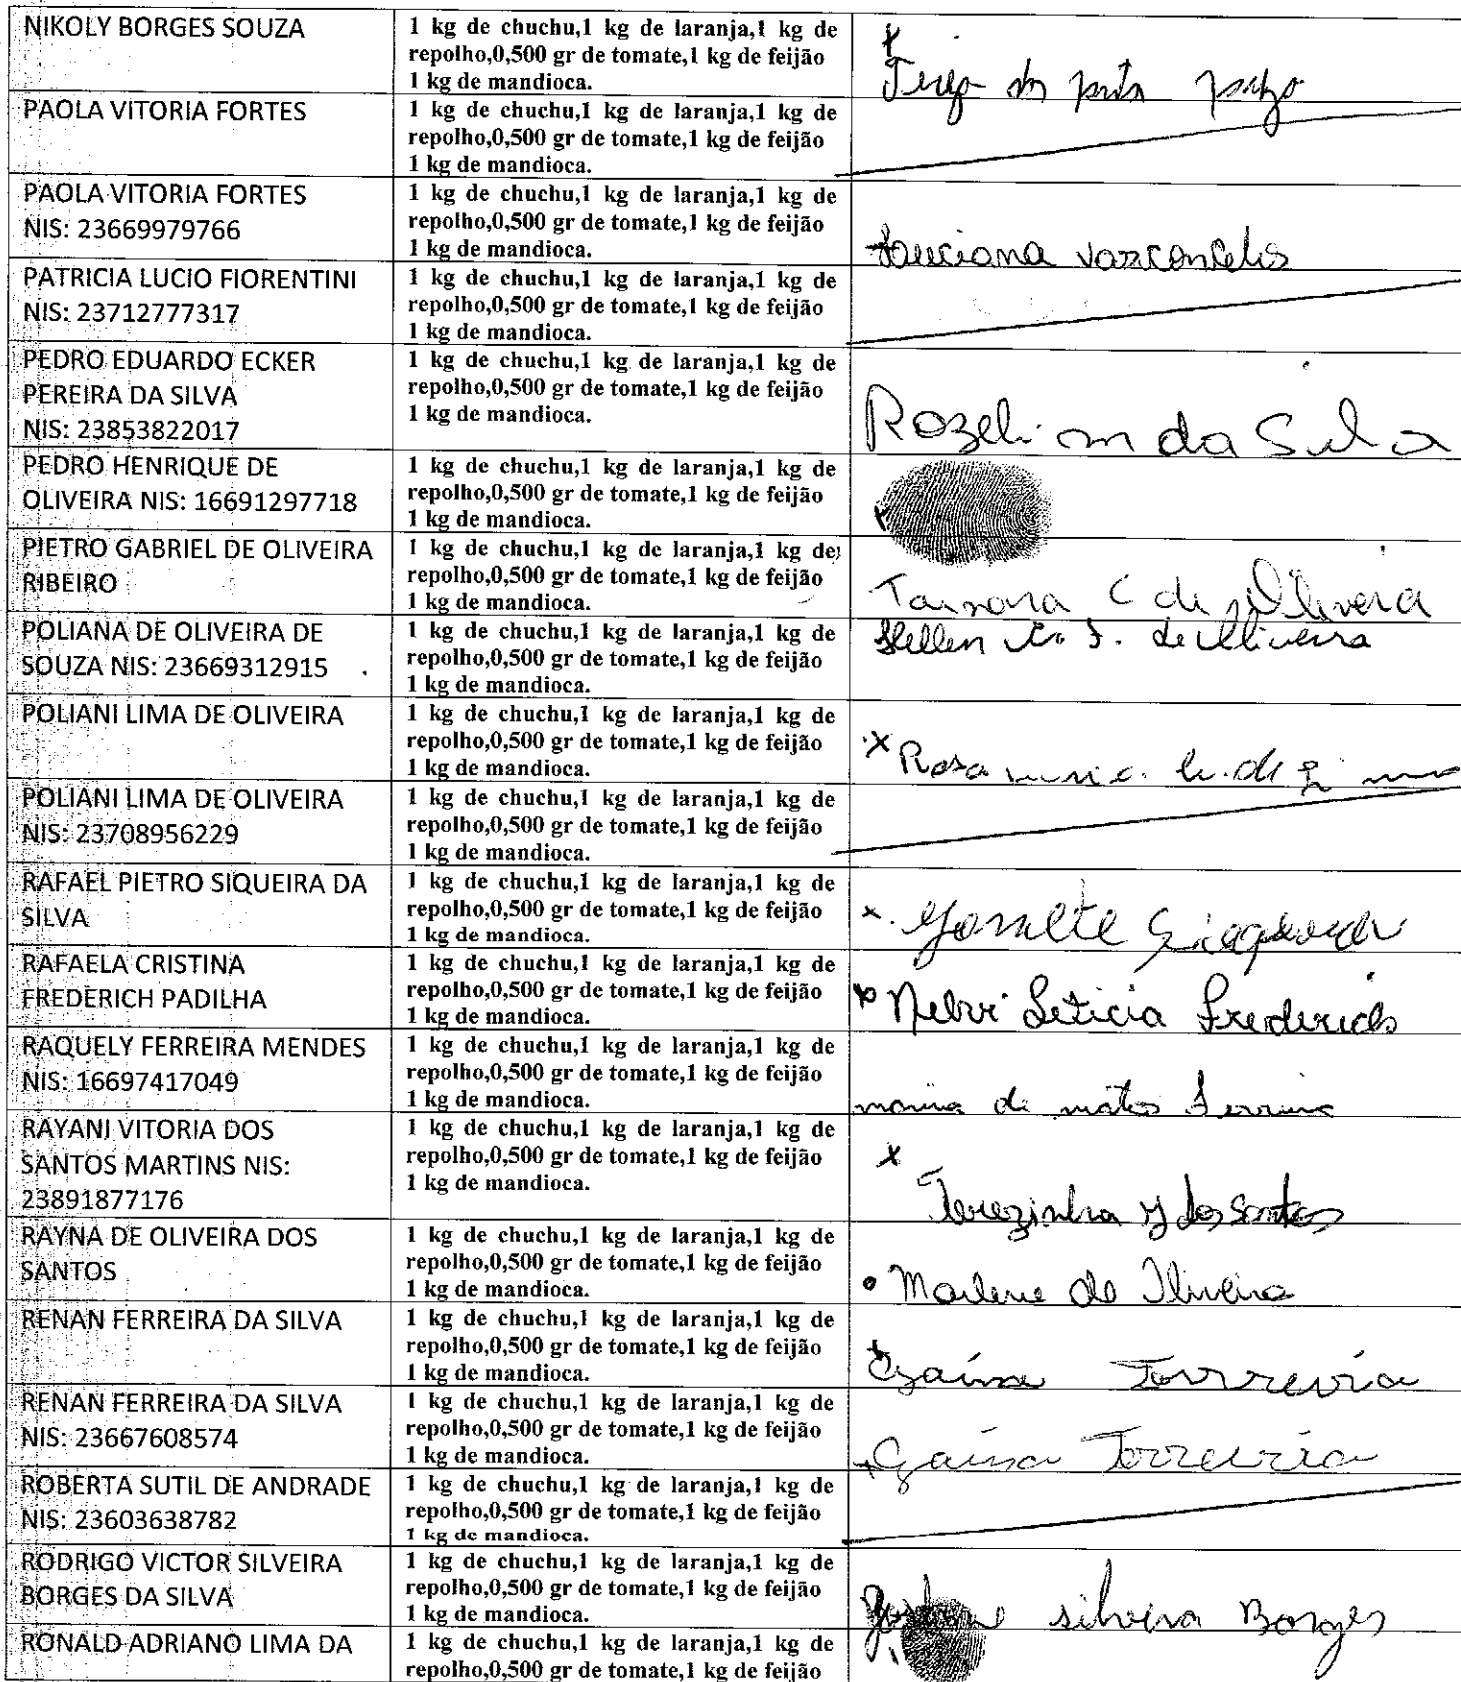 NIKOLY BORGES SOUZA
1 kg de chuchu,1 kg de laranja,1 kg de
repolho,0,500 gr de tomate,1 kg de feijão
1 kg de mandioca.
PAOLA VITORIA FORTES
1 kg de chuchu,1 kg de laranja,1 kg de
repolho,0,500 gr de tomate,1 kg de feijão
1 kg de mandioca.
PAOLA VITORIA FORTES
NIS: 23669979766
1 kg de chuchu,1 kg de laranja,1 kg de
repolho,0,500 gr de tomate,1 kg de feijão
1 kg de mandioca.
PATRICIA LUCIO FIORENTINI
NIS: 23712777317
1 kg de chuchu,1 kg de laranja,1 kg de
repolho,0,500 gr de tomate,1 kg de feijão
1 kg de mandioca.
PEDRO EDUARDO ECKER
PEREIRA DA SILVA
NIS: 23853822017
1 kg de chuchu,1 kg de laranja,1 kg de
repolho,0,500 gr de tomate,1 kg de feijão
1 kg de mandioca.
da Silva
PEDRO HENRIQUE DE
OLIVEIRA NIS: 16691297718
1 kg de chuchu,1 kg de laranja,1 kg de
repolho,0,500 gr de tomate,1 kg de feijão
1 kg de mandioca.
PIETRO GABRIEL DE OLIVEIRA
RIBEIRO
1 kg de chuchu,1 kg de laranja,1 kg de
repolho,0,500 gr de tomate,1 kg de feijão
1 kg de mandioca.
C de Oliveira
POLIANA DE OLIVEIRA DE
SOUZA NIS: 23669312915
1 kg de chuchu,1 kg de laranja,1 kg de
repolho,0,500 gr de tomate,1 kg de feijão
1 kg de mandioca.
de Oliveira
POLIANI LIMA DE OLIVEIRA
1 kg de chuchu,1 kg de laranja,1 kg de
repolho,0,500 gr de tomate,1 kg de feijão
1 kg de mandioca.
x Rosa
POLIANI LIMA DE OLIVEIRA
NIS: 23708956229
1 kg de chuchu,1 kg de laranja,1 kg de
repolho,0,500 gr de tomate,1 kg de feijão
1 kg de mandioca.
RAFAEL PIETRO SIQUEIRA DA
SILVA
1 kg de chuchu,1 kg de laranja,1 kg de
repolho,0,500 gr de tomate,1 kg de feijão
1 kg de mandioca.
RAFAELA CRISTINA
FREDERICH PADILHA
1 kg de chuchu,1 kg de laranja,1 kg de
repolho,0,500 gr de tomate,1 kg de feijão
1 kg de mandioca.
Leticia
RAQUELY FERREIRA MENDES
NIS: 16697417049
1 kg de chuchu,1 kg de laranja,1 kg de
repolho,0,500 gr de tomate,1 kg de feijão
1 kg de mandioca.
RAYANI VITORIA DOS
SANTOS MARTINS NIS:
23891877176
1 kg de chuchu,1 kg de laranja,1 kg de
repolho,0,500 gr de tomate,1 kg de feijão
1 kg de mandioca.
x
Terezinha dos Santos
RAYNA DE OLIVEIRA DOS
SANTOS
1 kg de chuchu,1 kg de laranja,1 kg de
repolho,0,500 gr de tomate,1 kg de feijão
1 kg de mandioca.
Marlene de Oliveira
RENAN FERREIRA DA SILVA
1 kg de chuchu,1 kg de laranja,1 kg de
repolho,0,500 gr de tomate,1 kg de feijão
1 kg de mandioca.
RENAN FERREIRA DA SILVA
NIS: 23667608574
1 kg de chuchu,1 kg de laranja,1 kg de
repolho,0,500 gr de tomate,1 kg de feijão
1 kg de mandioca.
ROBERTA SUTIL DE ANDRADE
NIS: 23603638782
1 kg de chuchu,1 kg de laranja,1 kg de
repolho,0,500 gr de tomate,1 kg de feijão
1 kg de mandioca.
RODRIGO VICTOR SILVEIRA
BORGES DA SILVA
1 kg de chuchu,1 kg de laranja,1 kg de
repolho,0,500 gr de tomate,1 kg de feijão
1 kg de mandioca.
silveira Borges
RONALD ADRIANO LIMA DA
1 kg de chuchu,1 kg de laranja,1 kg de
repolho,0,500 gr de tomate,1 kg de feijão